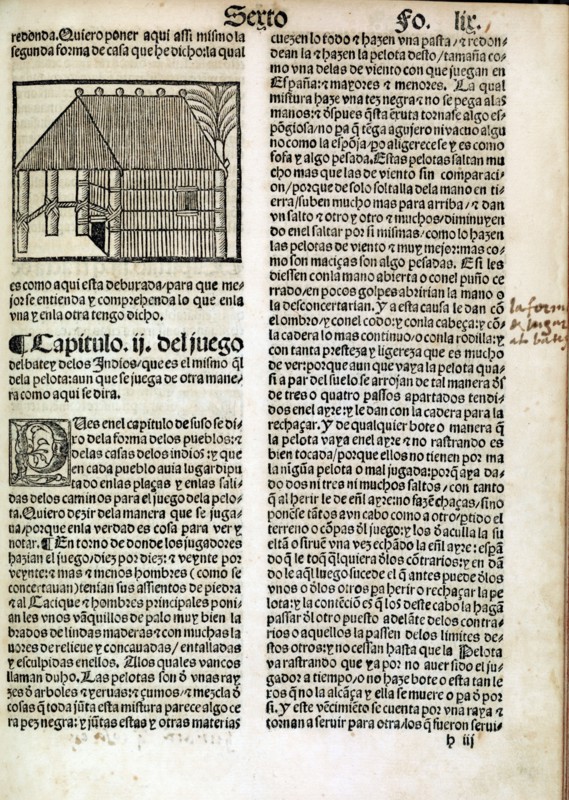 Sexto Fo. lix.
redonda. Quiero poner aqui assi mismo la
segunda forma de casa que he dicho: la qual
es como aqui esta debuxada/para que me-
jor se entienda y comprehenda lo que enla
vna y enla otra tengo dicho.
¶Capitulo. ij. del juego
del batey delos Indios/que es el mismo q̃l
dela pelota: aun que se juega de otra mane-
ra como aqui se dira.
PUes enel capitulo de suso se di-
ro dela forma delos pueblos: ⁊
delas casas delos indios: y que
en cada pueblo auia lugar dipu
tado enlas plaças y enlas sali-
das delos caminos para el juego dela pelo-
ta. Quiero dezir dela manera que se juga-
ua/porque enla verdad es cosa para ver y
notar. ¶En torno de donde los jugadores
hazian el juego/diez por diez: ⁊ veynte por
veynte: ⁊ mas ⁊ menos hombres (como se
concertauan) tenian sus assientos de piedra
⁊ al Cacique ⁊ hombres principales poni-
an les vnos vãquillos de palo muy bien la
brados de lindas maderas ⁊ con muchas la
uores de relieue y concauadas/entalladas
y esculpidas enellos. Alos quales vancos
llaman duho. Las pelotas son õ vnas ray
zes õ arboles ⁊ yeruas: ⁊ çumos/⁊ mezcla õ
cosas q̃ toda jũta esta mistura parece algo ce
ra pez negra: y jũtas estas y otras materias
cuezen lo todo ⁊ hazen vna pasta/⁊ redon-
dean la ⁊ hazen la pelota desto/tamaña co-
mo vna delas de viento con que juegan en
España: ⁊ mayores ⁊ menores. La qual
mistura haze vna tez negra: ⁊ no se pega a las
manos: ⁊ õspues q̃sta exuta tornase algo es-
põgiosa/no pa q̃ tẽga agujero ni vacuo algu
no como la espõja/po aligerece se y es como
sofa y algo pesada. Estas pelotas saltan mu
cho mas que las de viento sin comparaci-
on/porque de solo soltalla dela mano en ti-
erra/suben mucho mas para arriba/⁊ dan
vn salto ⁊ otro y otro ⁊ muchos/diminuyen
do enel saltar por si mismas/como lo hazen
las pelotas de viento ⁊ muy mejor: mas co-
mo son maciças son algo pesadas. E si les
diessen con la mano abierta o conel puño ce
rrado/en pocos golpes abririan la mano o
la desconcertarian. Y a esta causa le dan cõ
el ombro/y conel codo: y con la cabeça: y cõ
la cadera lo mas continuo/o conla rodilla: y
con tanta presteza y ligereza que es mucho
de ver: porque aun que vaya la pelota qua-
si a par del suelo se arrojan de tal manera õs
de tres o quatro passos apartados tendi-
dos enel ayre: y le dan con la cadera para la
rechaçar. Y de qualquier bote o manera q̃
la pelota vaya enel ayre ⁊ no rastrando es
bien tocada/porque ellos no tienen por ma
la nĩgũa pelota o mal jugada: porq̃ aya da-
do dos ni tres ni muchos saltos/con tanto
q̃ al herir le de enl̃ ayre: no fazẽ chaças/sino
ponẽse tãtos avn cabo como a otro/ptido el
terreno o cõpas õl juego: y los õ aculla la su
eltã o siruẽ vna vez echãdo la enl̃ ayre: espã
do q̃ le toq̃ qlquiera õlos cõtrarios: y en dã
do le aql̃ luego sucede el q̃ antes puede õlos
vnos o õlos otros pa herir o rechaçar la pe
lota: y la contẽciõ es q̃ los deste cabo la hagã
passar õl otro puesto adelãte delos contra-
rios o aquellos la passen delos limites des-
tos otros: y no cessan hasta que la Pelota
va rastrando que ya por no auer sido el ju-
gador a tiempo/o no haze bote o esta tan le
xos q̃ no la alcãça y ella se muere o pa õ por
si. Y este vẽcimiẽto se cuenta por vna raya ⁊
tornan a seruir para otra/los q̃ fueron serui-
h iij